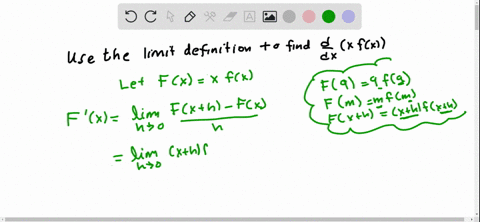 Use the limit definition to find d/dx (x f(x))
Let F(x) = x f(x)
F'(x) = lim h→0 F(x+h) - F(x) / h
= lim h→0 (x+h) f
F(q) = q f(q)
F(m) = m f(m)
F(x+h) = (x+h) f(x+h)